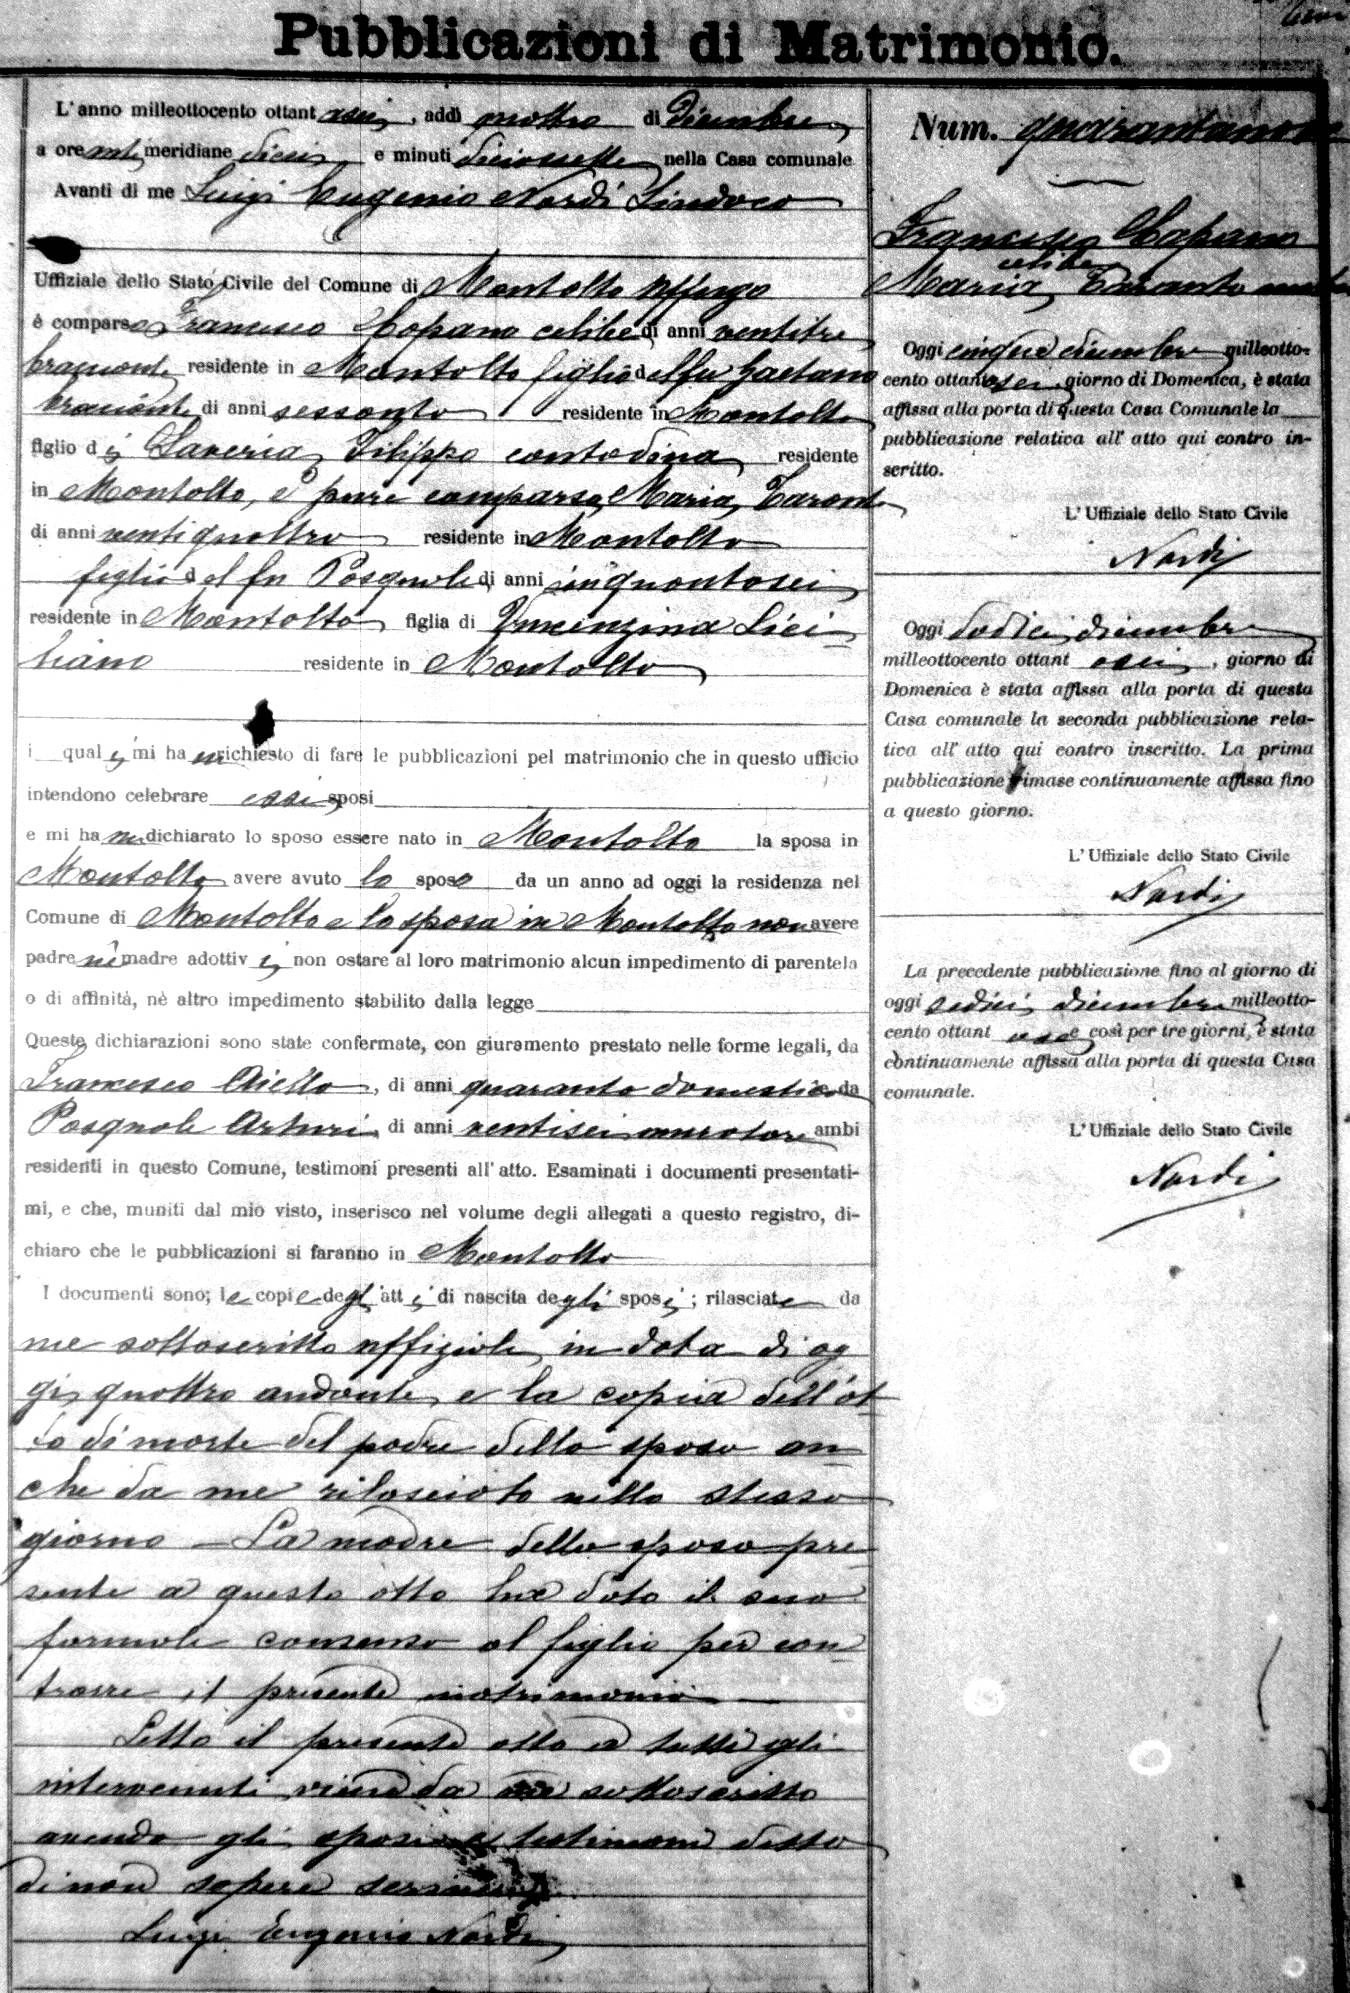 Pubblicazioni di Matrimonio.
L'anno milleottocento ottant asei, addi quattro di Dicembre,
a ore anti meridiane dieci e minuti diciassette nella Casa comunale
Avanti di me Luigi Eugenio Nardi Sindaco
Uffiziale dello Stato Civile del Comune di Montalto Uffugo
è comparso Francesco Capano celibe di anni ventitre
bracciante residente in Montalto figlio del fu Gaetano
bracciante di anni sessanta residente in Montalto
figlio di Saveria Filippo contadina residente
in Montalto, è pure comparsa Maria Taranto
di anni ventiquattro residente in Montalto
figlia del fu Pasquale di anni cinquantasei
residente in Montalto figlia di Vincenzina Sici
liano residente in Montalto
i quali mi hanno richiesto di fare le pubblicazioni pel matrimonio che in questo ufficio
intendono celebrare essi sposi
e mi hanno dichiarato lo sposo essere nato in Montalto la sposa in
Montalto avere avuto lo sposo da un anno ad oggi la residenza nel
Comune di Montalto e la sposa in Montalto non avere
padre nè madre adottivi, non ostare al loro matrimonio alcun impedimento di parentela
o di affinità, nè altro impedimento stabilito dalla legge
Queste dichiarazioni sono state confermate, con giuramento prestato nelle forme legali, da
Francesco Aiello, di anni quaranta domestico e da
Pasquale Arturi, di anni ventisei muratore ambi
residenti in questo Comune, testimoni presenti all'atto. Esaminati i documenti presentati-
mi, e che, muniti dal mio visto, inserisco nel volume degli allegati a questo registro, di-
chiaro che le pubblicazioni si faranno in Montalto
I documenti sono; le copie degli atti di nascita degli sposi; rilasciate da
me sottoscritto uffiziale in data di og
gi quattro andante, e la copia dell'at
to di morte del padre dello sposo an
che da me rilasciato nello stesso
giorno - La madre dello sposo pre
sente a questo atto ha dato il suo
formale consenso al figlio per con
trarre il presente matrimonio
Letto il presente atto a tutti gli
intervenuti viene da me sottoscritto
avendo gli sposi e testimoni detto
di non sapere scrivere
Luigi Eugenio Nardi
Num. quarantanove
Francesco Capano
celibe
Maria Taranto nubile
Oggi cinque dicembre milleotto-
cento ottantasei, giorno di Domenica, è stata
affissa alla porta di questa Casa Comunale la
pubblicazione relativa all'atto qui contro in-
scritto.
L'Uffiziale dello Stato Civile
Nardi
Oggi dodici dicembre
milleottocento ottant asei, giorno di
Domenica è stata affissa alla porta di questa
Casa comunale la seconda pubblicazione rela-
tiva all'atto qui contro inscritto. La prima
pubblicazione rimase continuamente affissa fino
a questo giorno.
L'Uffiziale dello Stato Civile
Nardi
La precedente pubblicazione fino al giorno di
oggi sedici dicembre milleotto-
cento ottant asei e così per tre giorni, è stata
continuamente affissa alla porta di questa Casa
comunale.
L'Uffiziale dello Stato Civile
Nardi